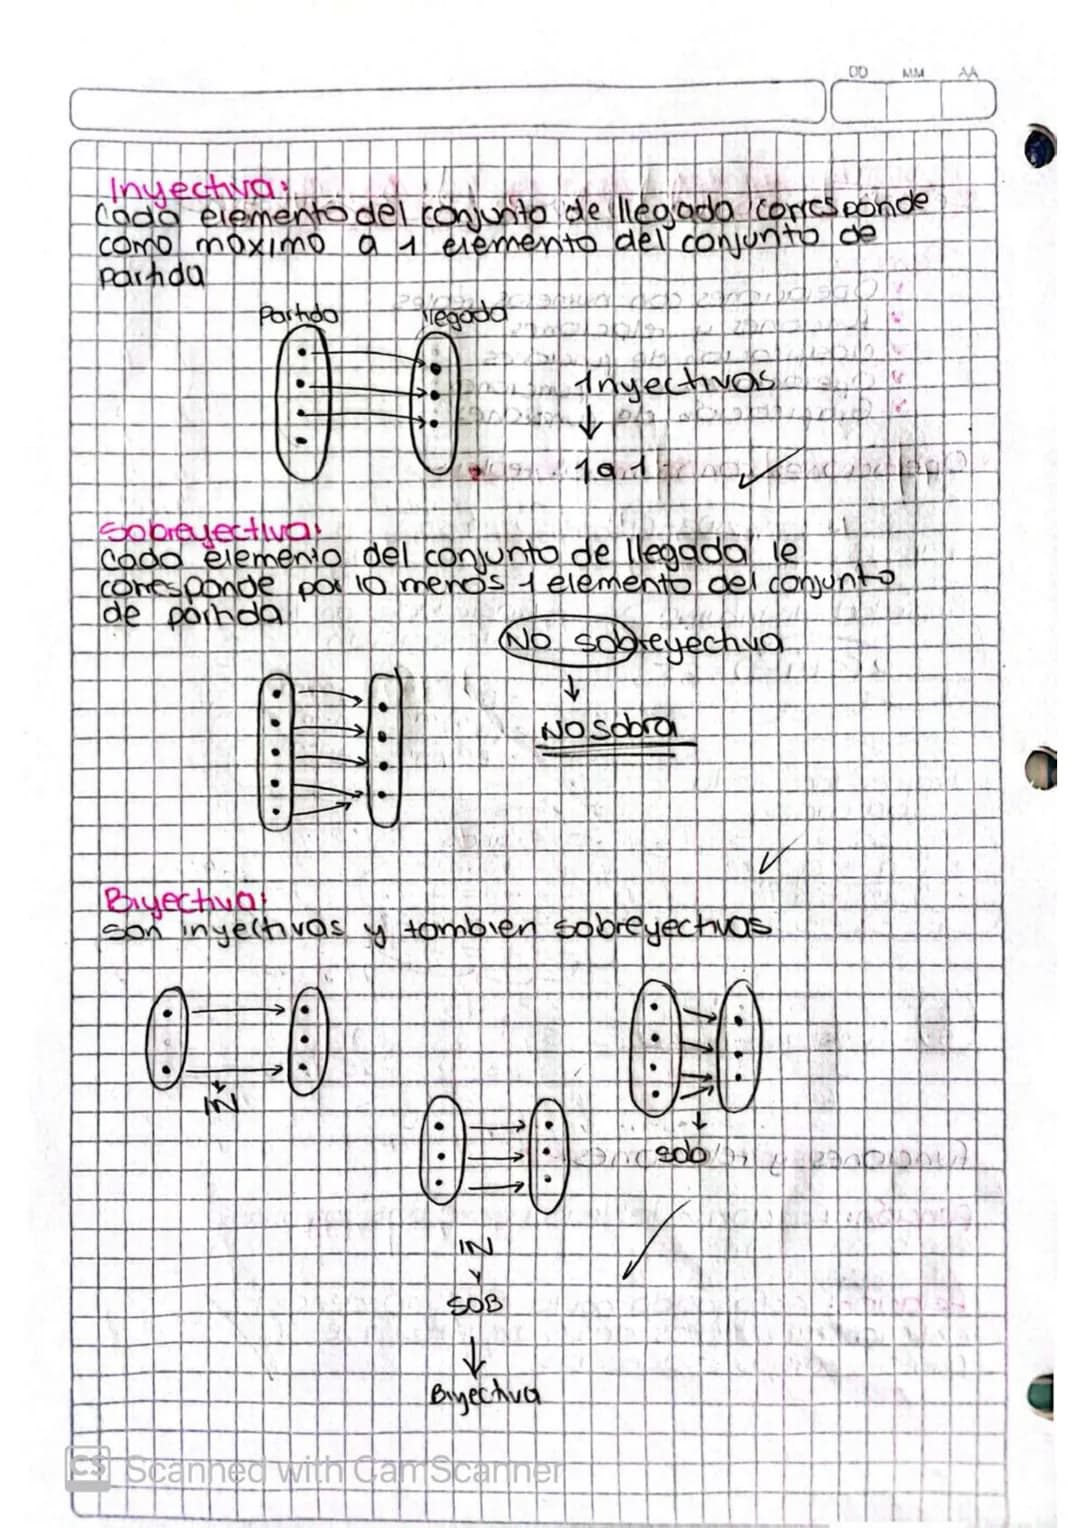 DD MM AA
Inyectiva:
Cada elemento del conjunto de llegada corresponde
como maximo a 1 elemento del conjunto de
partida
Partida llegada
Inyectivas
1 a 1
Sobreyectiva:
Cada elemento del conjunto de llegada le
corresponde por lo menos 1 elemento del conjunto
de partida
No sobreyectiva
No sobra
Biyectiva:
son inyectivas y tambien sobreyectivas
IN
sob
IN
y
SOB
Biyectiva
CS Scanned with CamScanner